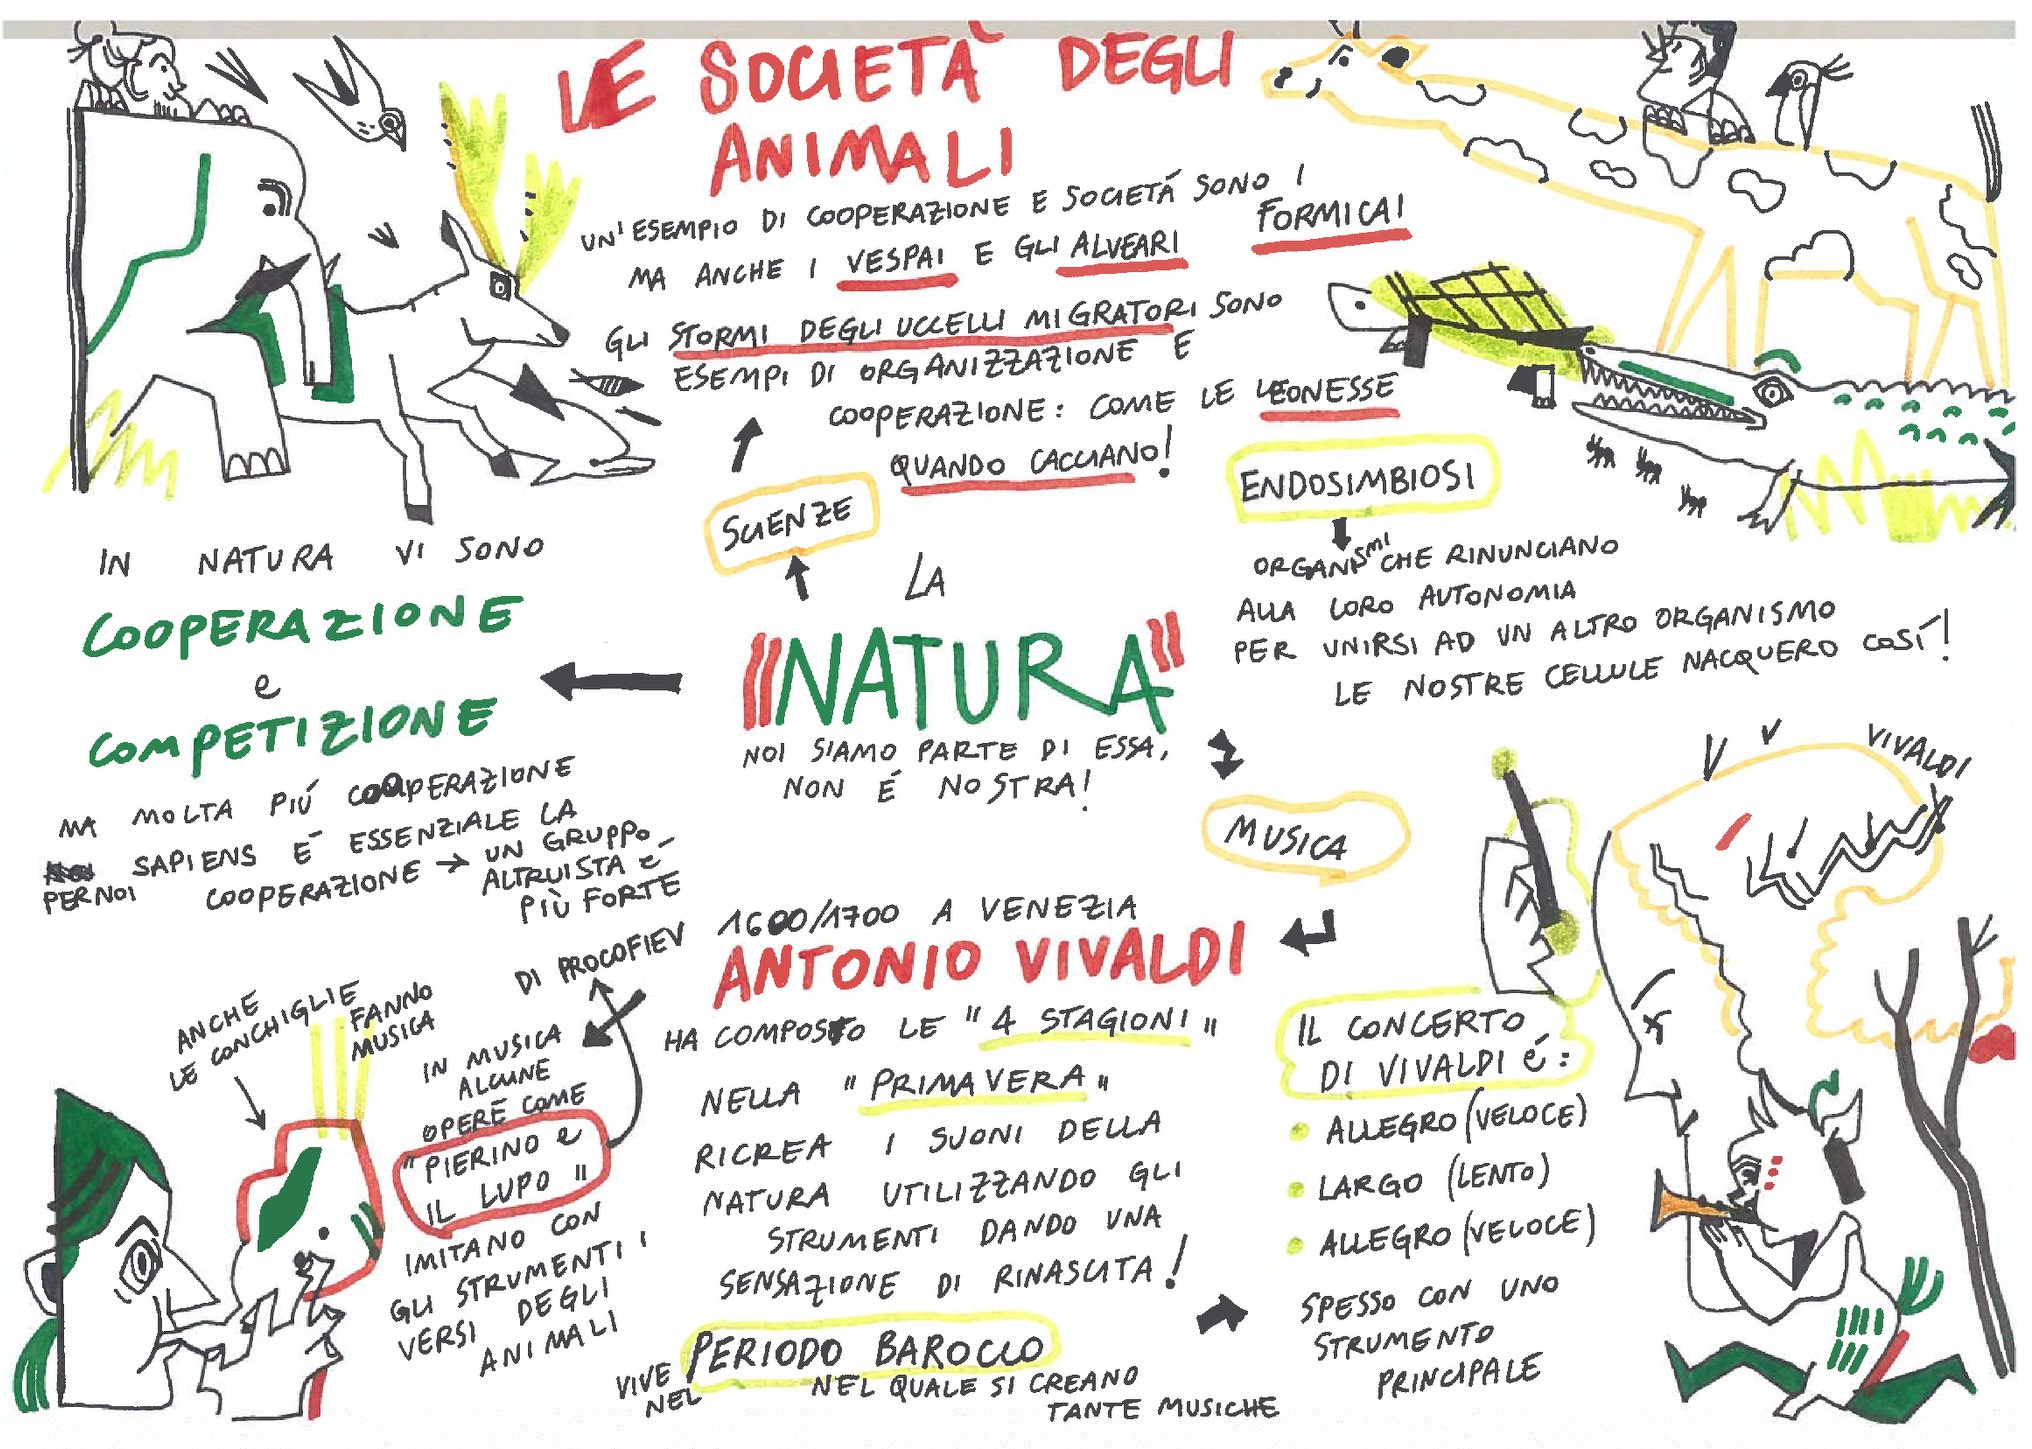 LE SOCIETÀ DEGLI
ANIMALI
UN'ESEMPIO DI COOPERAZIONE E SOCIETÁ SONO I
FORMICAI
MA ANCHE I VESPAI E GLI ALVEARI
GLI STORMI DEGLI UCCELLI MIGRATORI SONO
ESEMPI DI ORGANIZZAZIONE E
COOPERAZIONE: COME LE LEONESSE
QUANDO CACCIANO!
SCIENZE
ENDOSIMBIOSI
ORGANISMI CHE RINUNCIANO
ALLA LORO AUTONOMIA
PER UNIRSI AD UN ALTRO ORGANISMO
LE NOSTRE CELLULE NACQUERO COSÍ!
IN NATURA VI SONO
COOPERAZIONE
e
COMPETIZIONE
MA MOLTA PIÚ COOPERAZIONE
PER NOI SAPIENS É ESSENZIALE LA
COOPERAZIONE → UN GRUPPO
ALTRUISTA É
PIÙ FORTE
LA
"NATURA"
NOI SIAMO PARTE DI ESSA,
NON É NOSTRA!
MUSICA
VIVALDI
1600/1700 A VENEZIA
ANTONIO VIVALDI
HA COMPOSTO LE "4 STAGIONI"
NELLA "PRIMAVERA"
RICREA I SUONI DELLA
NATURA UTILIZZANDO GLI
STRUMENTI DANDO UNA
SENSAZIONE DI RINASCITA!
VIVE NEL PERIODO BAROCCO
NEL QUALE SI CREANO
TANTE MUSICHE
IL CONCERTO
DI VIVALDI É:
• ALLEGRO (VELOCE)
• LARGO (LENTO)
• ALLEGRO (VELOCE)
SPESSO CON UNO
STRUMENTO
PRINCIPALE
DI PROCOFIEV
IN MUSICA
ALCUNE
OPERE COME
"PIERINO e
IL LUPO"
IMITANO CON
GLI STRUMENTI I
VERSI DEGLI
ANIMALI
ANCHE
LE CONCHIGLIE
FANNO
MUSICA